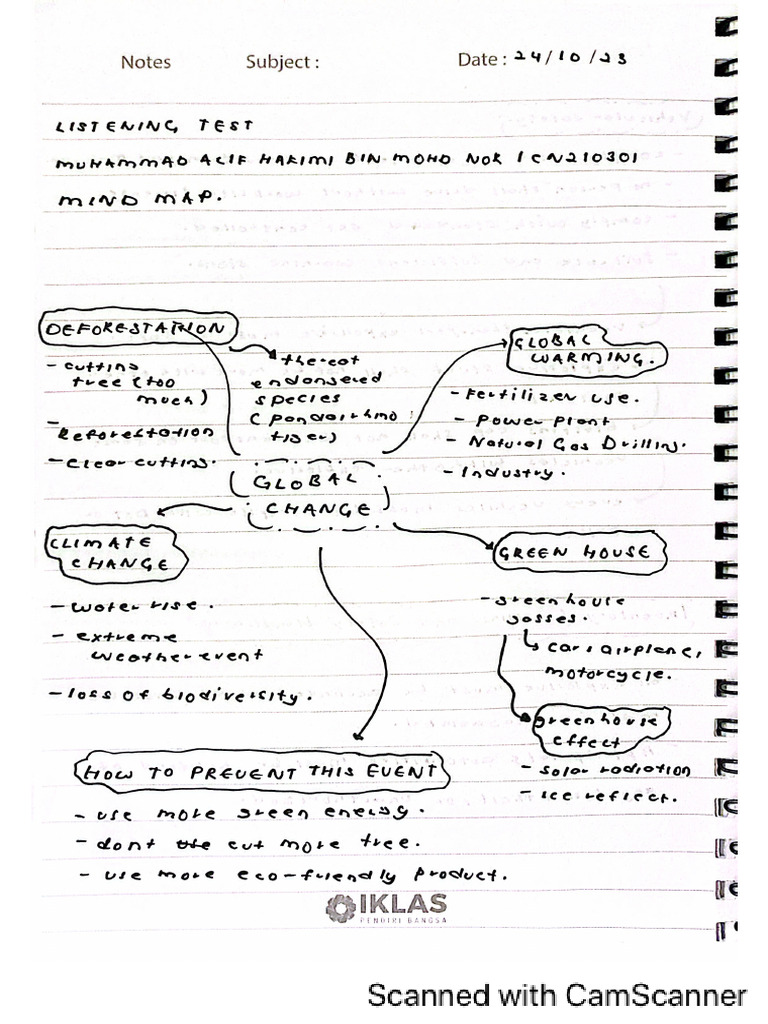 Notes Subject : Date : 24/10/23
LISTENING TEST
MUHAMMAD ALIF HAKIMI BIN MOHD NOR / CN210301
MIND MAP.
DEFORESTATION
- cutting
tree (too
much)
- Reforestation
- Clear cutting.
threat
endangered
species
(panda, rhino,
tiger)
GLOBAL
WARMING.
- Fertilizer use.
- Power Plant
- Natural Gas Drilling.
- Industry.
GLOBAL
CHANGE
CLIMATE
CHANGE
- water rise.
- extreme
weather event
- loss of biodiversity.
GREEN HOUSE
- greenhouse
gasses.
car, airplane,
motorcycle.
greenhouse
effect
- solar radiation
- Ice reflect.
HOW TO PREVENT THIS EVENT
- use more green energy.
- dont cut more tree.
- use more eco-friendly product.
IKLAS
PENDIRI BANGSA
Scanned with CamScanner